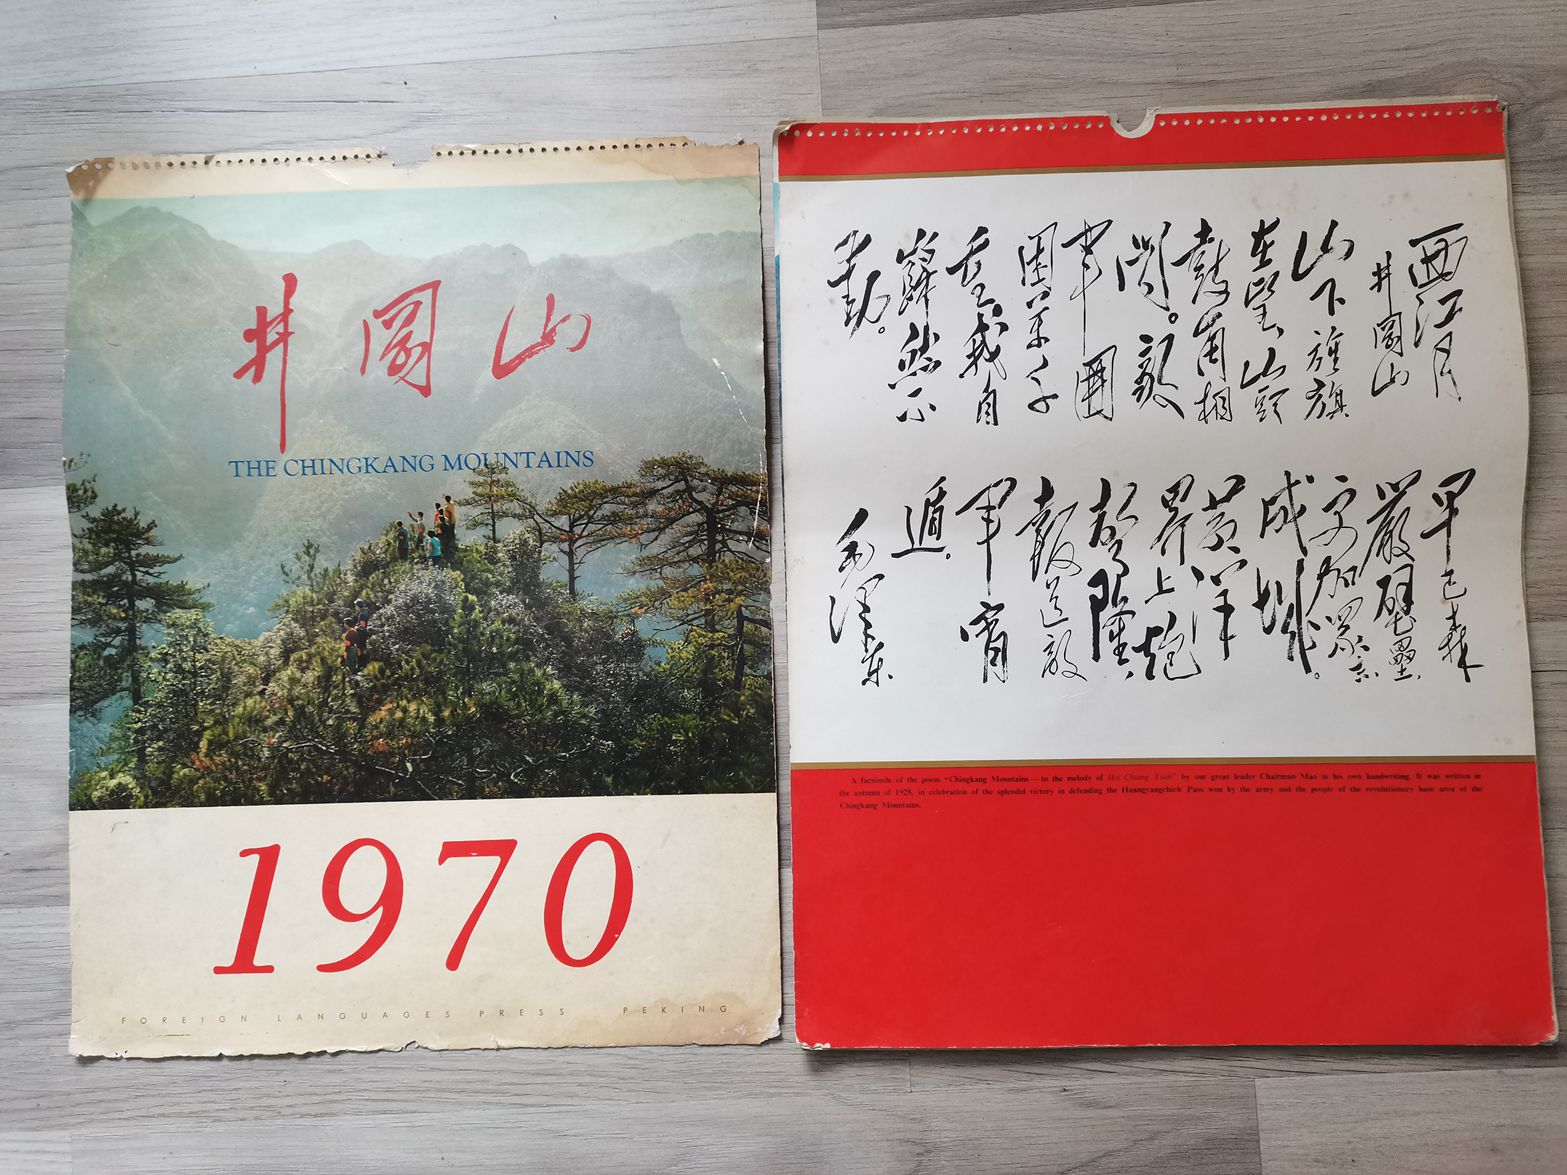 井岡山
THE CHINGKANG MOUNTAINS
1970
FOREIGN LANGUAGES PRESS PEKING
西江月
井岡山
山下旌旗
在望,山頭
鼓角相
聞。敵
軍圍
困萬千
重,我自
巋然不
動。
早已森
嚴壁壘,
更加眾志
成城。
黄洋
界上炮
聲隆,
報道敵
軍宵
遁。
毛澤东
A facsimile of the poem "Chingkang Mountains — to the melody of Hsi Chiang Yueh" by our great leader Chairman Mao in his own handwriting. It was written in
the autumn of 1928, in celebration of the splendid victory in defending the Huangyangchieh Pass won by the army and the people of the revolutionary base area of the
Chingkang Mountains.